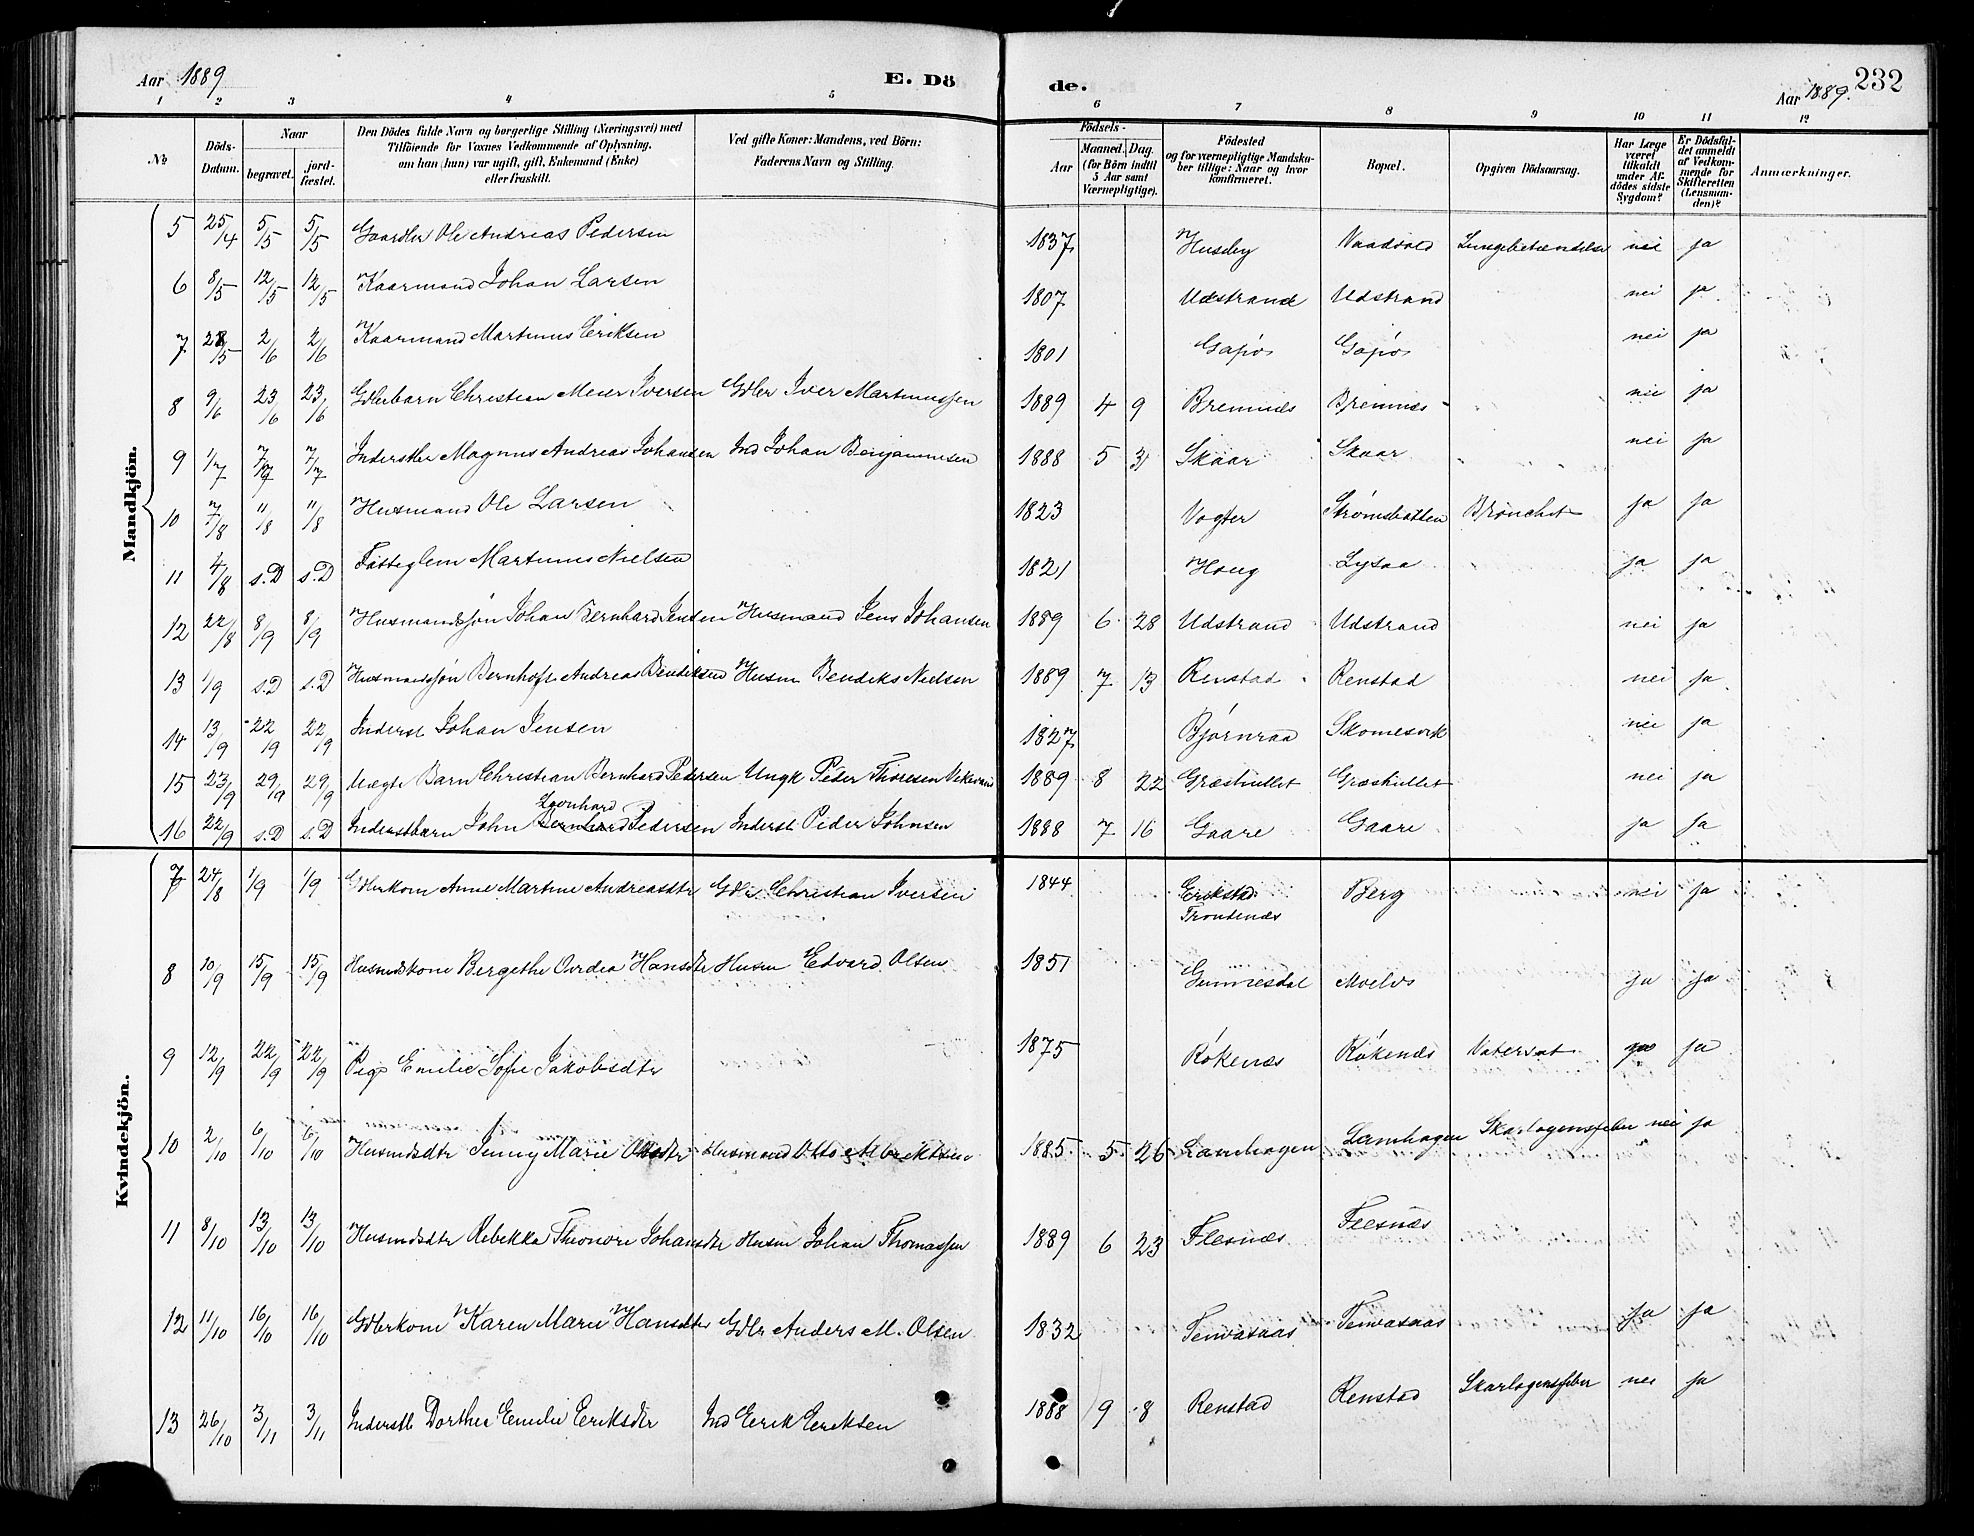 Aar 1889 E. Dö de. Aar 1889. 232
1 2 3 4 5 6 7 8 9 10 11 12
№ Döds-Datum. Naar begravet. jord-fæstet. Den Dödes fulde Navn og borgerlige Stilling (Næringsvei) med Tilföiende for Voxnes Vedkommende af Oplysning, om han (hun) var ugift, gift, Enkemand (Enke) eller fraskilt. Ved gifte Koner: Mandens, ved Börn: Faderens Navn og Stilling. Födsels- Aar Maaned. Dag. (for Börn indtil 5 Aar samt Værnepligtige). Födested og for værnepligtige Mandska-ber tillige: Naar og hvor konfirmeret. Bopæl. Opgiven Dödsaarsag. Har Læge været tilkaldt under Af-dödes sidste Sygdom? Er Dödsfal-det anmeldt af Vedkom-mende for Skifteretten (Lensman-den)? Anmærkninger.
Mandkjön.
5 25/4 5/5 5/5 Gaardbr Ole Andreas Pedersen 1837 Husby Vaadvold Lungebetændelse nei ja
6 8/5 12/5 12/5 Kaarmand Johan Larsen 1807 Udstrand Udstrand nei ja
7 28/5 2/6 2/6 Kaarmand Martinus Eriksen 1801 Gapøs Gapøs nei ja
8 9/6 23/6 23/6 Gdbrbarn Christian Meier Iversen Gdbr Iver Martinussen 1889 4 9 Bremnes Bremnes nei ja
9 1/7 7/7 7/7 Inderstbr Magnus Andreas Johansen Ind Johan Benjaminsen 1888 5 31 Skaar Skaar nei ja
10 7/8 11/8 11/8 Husmand Ole Larsen 1823 Vogter Strømsbotten Bronchit ja ja
11 4/8 s.D s.D Fatteglem Martinus Nielsen 1821 Houg Lysaa ja ja
12 22/8 8/9 8/9 Husmandssøn Johan Bernhard Jensen Husmand Jens Johansen 1889 6 28 Udstrand Udstrand nei ja
13 1/9 s.D s.D Husmandssøn Bernhoft Andreas Bendiksen Husm Bendiks Nielsen 1889 7 13 Renstad Renstad nei ja
14 13/9 22/9 22/9 Inderst Johan Jensen 1827 Bjørnraa Skomesvik nei ja
15 23/9 29/9 29/9 Uægte Barn Christian Bernhard Pedersen Ungk Peder Thoresen 1889 8 22 Græshullet Græshullet nei ja
16 22/9 s.D s.D Inderstbarn John Leonhard Bernhard Pedersen Inderst Peder Johnsen 1888 7 16 Gaare Gaare ja ja
Kvindekjön.
7 24/8 1/9 1/9 Gdbrkone Anne Martine Andreasdtr Gdbr Christian Iversen 1844 Erikstad Trondenæs Berg nei ja
8 10/9 15/9 15/9 Husmdskone Bergethe Ovidea Hansdtr Husm Edvard Olsen 1851 Gunnesdal Moelvs ja ja
9 12/9 22/9 22/9 Pige Emilie Sofie Jakobsdtr 1875 Røkenæs Røkenæs Vatersot ja ja
10 2/10 6/10 6/10 Husmdsdtr Jenny Marie Ottosdtr Husmand Otto Albrektsen 1885 5 26 Lamhagen Lamhagen Skarlagensfeber nei ja
11 8/10 13/10 13/10 Husmdsdtr Rebekka Theonore Johansdtr Husm Johan Thomassen 1889 6 23 Flesnæs Flesnæs
12 11/10 16/10 16/10 Gdbrkone Karen Marie Hansdtr Gdbr Anders M. Olsen 1832 Tennasaas Tennasaas ja ja
13 26/10 3/11 3/11 Inderstb Dorthea Emilie Eriksdtr Ind Erik Eriksen 1888 9 8 Renstad Renstad Skarlagensfeber nei ja